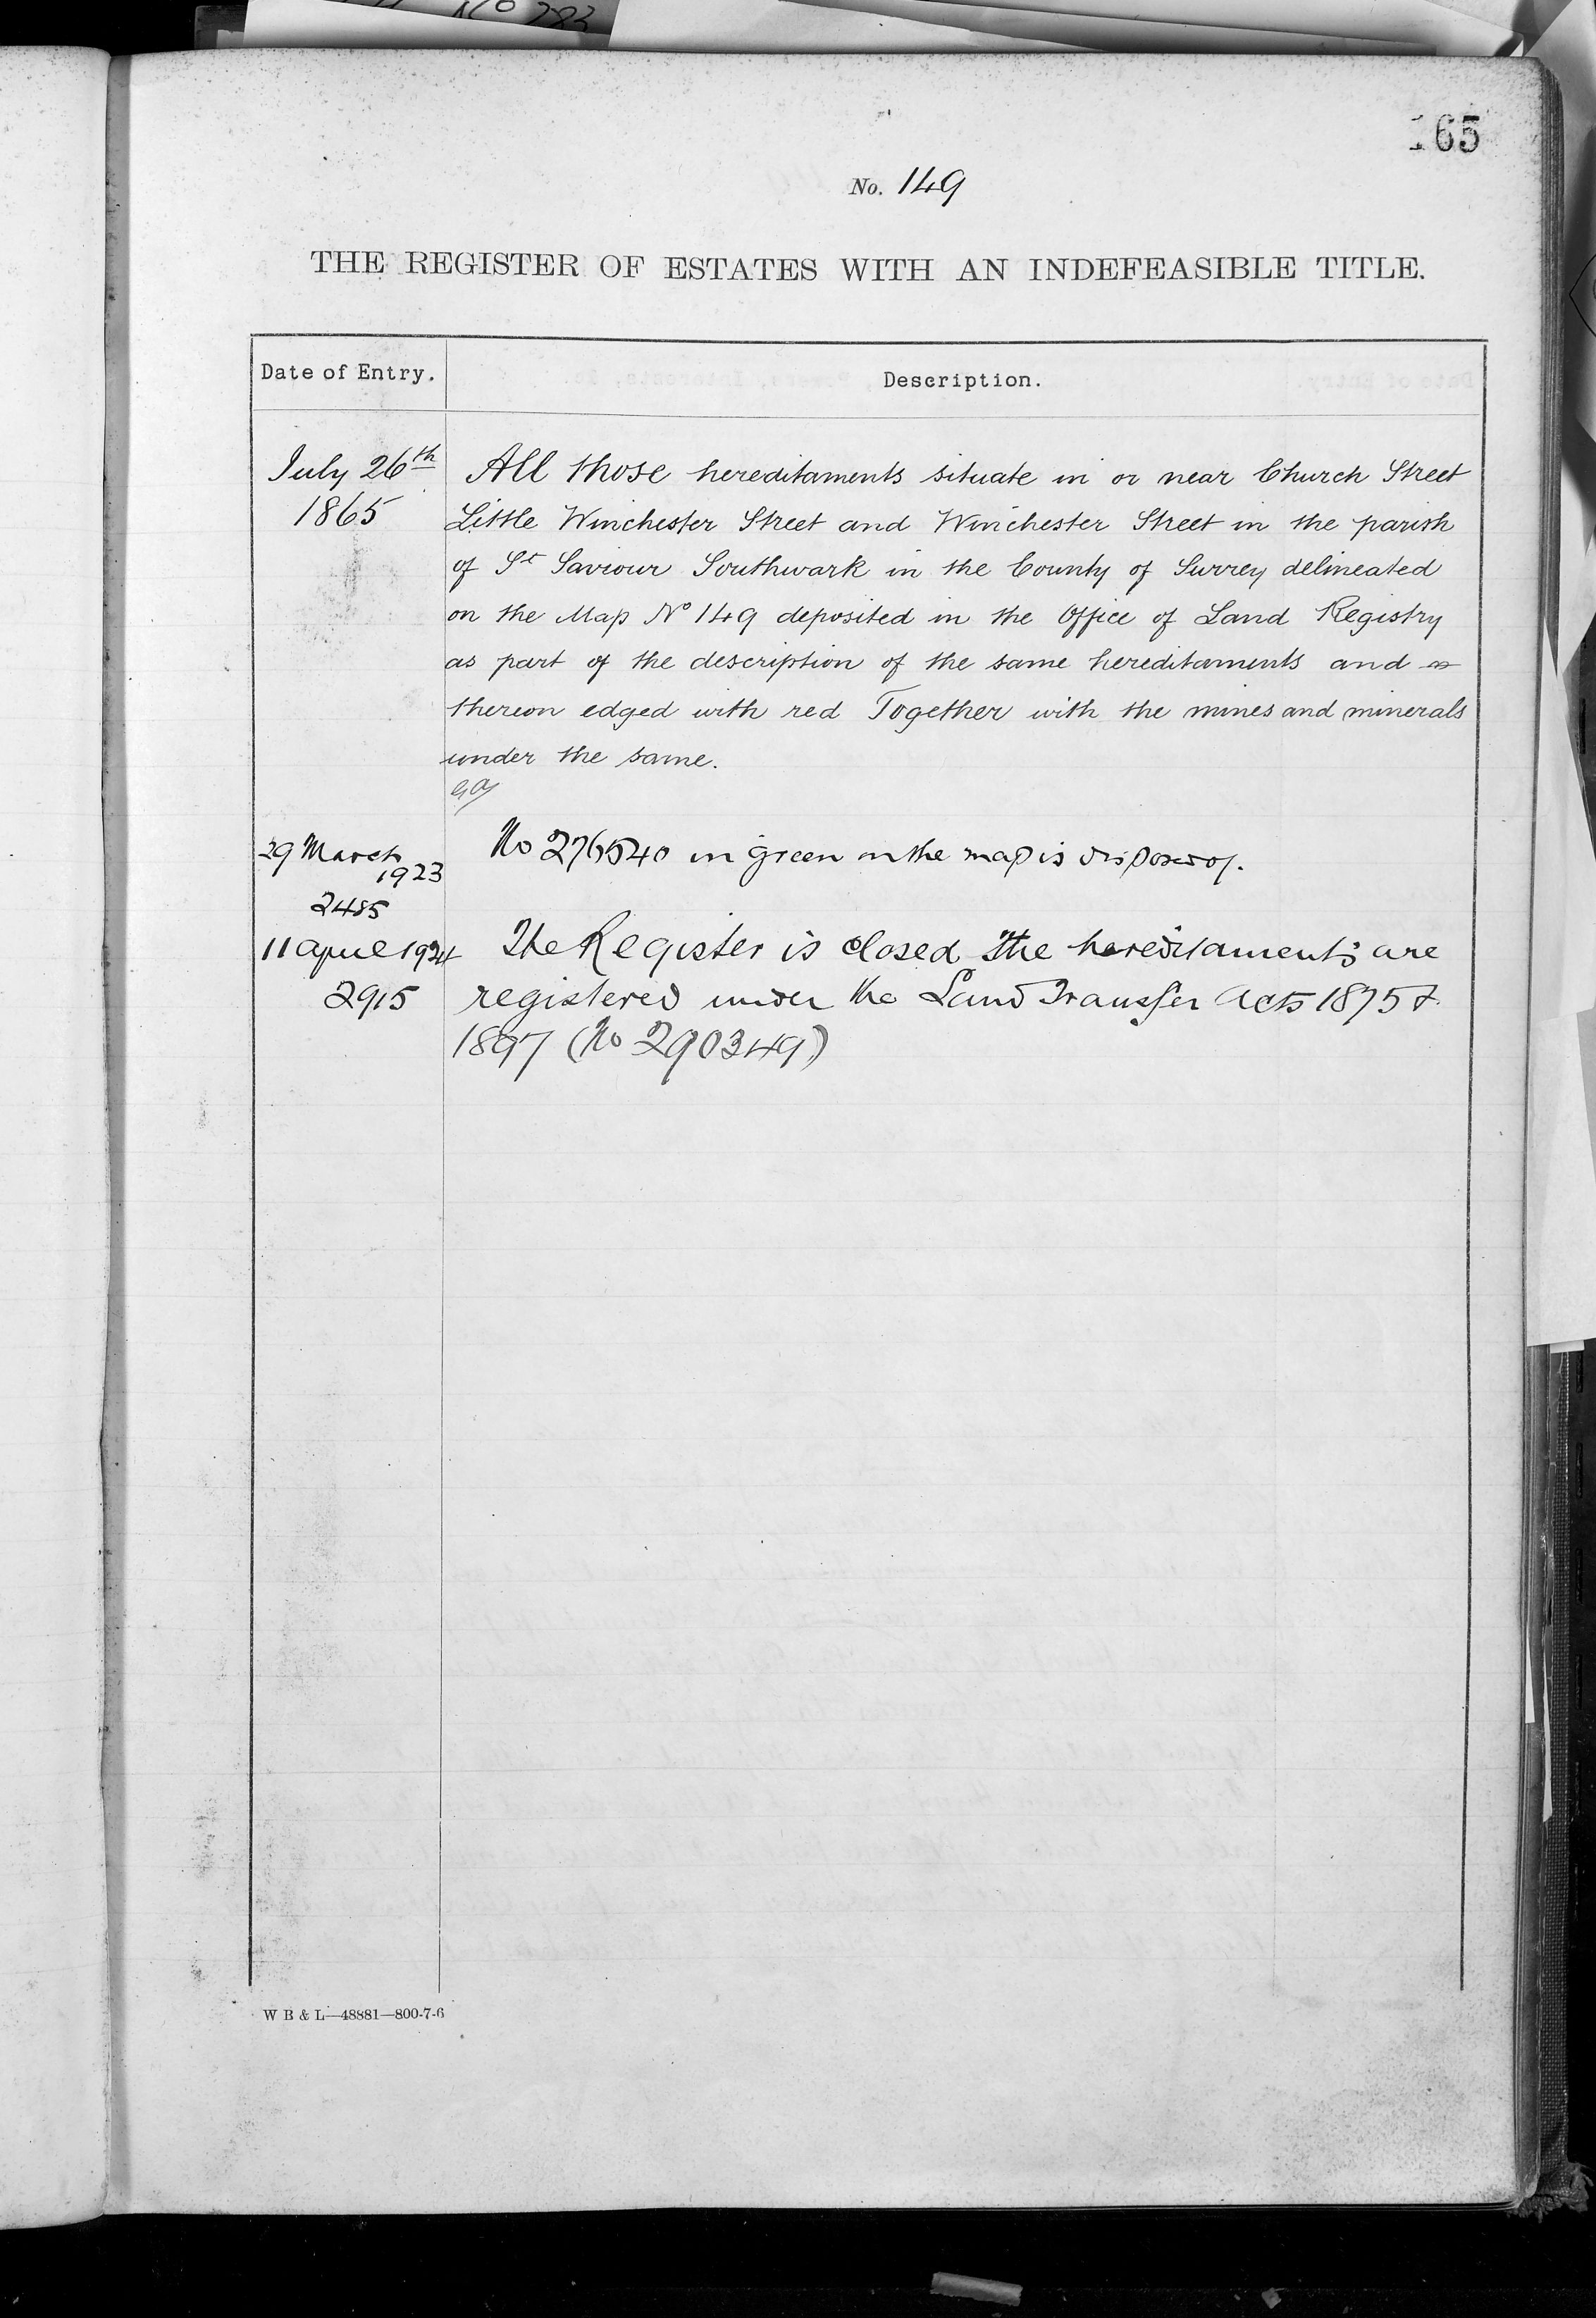 165
No. 149
THE REGISTER OF ESTATES WITH AN INDEFEASIBLE TITLE.
Date of Entry.
Description.
July 26th
1865
All those hereditaments situate in or near Church Street
Little Winchester Street and Winchester Street in the parish
of St Saviour Southwark in the County of Surrey delineated
on the Map No 149 deposited in the Office of Land Registry
as part of the description of the same hereditaments and
thereon edged with red Together with the mines and minerals
under the same.
29 March
1923
2485
No 276540 in green on the map is disposed of.
11 April 1924
2915
The Register is closed the hereditaments are
registered under the Land Transfer Acts 1875 &
1897 (No 290349)
W B & L—48881—800-7-6